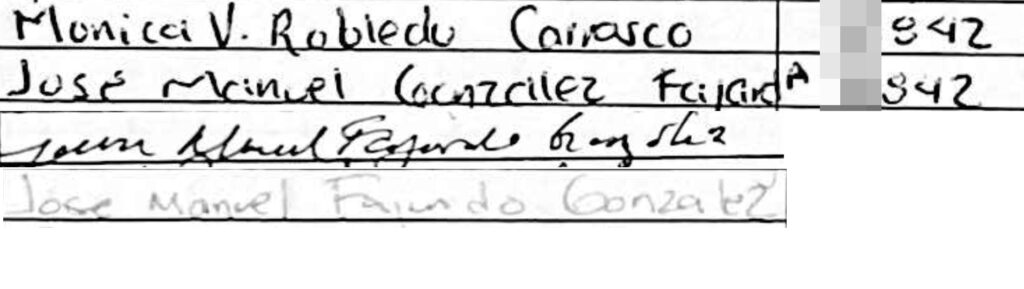 Monica V. Robledo Carrasco 842
José Manuel González Fajard A 842
Manuel Fajardo González
Jose Manuel Fajardo Gonzalez